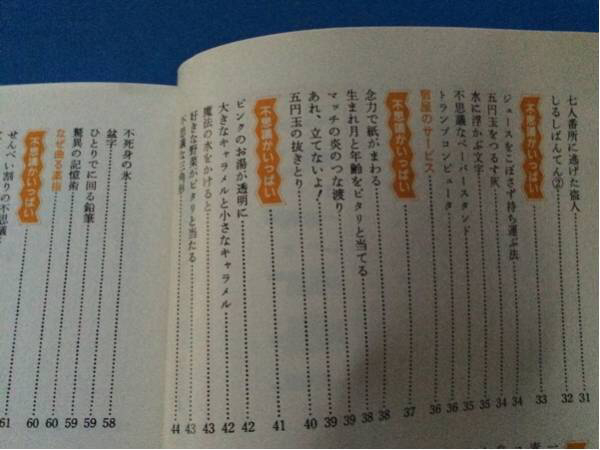 七人番所に逃げた盗人 31
しるしばんてん② 32
不思議がいっぱい 33
ジュースをこぼさず持ち運ぶ法 34
五円玉をつるす灰 34
水に浮かぶ文字 35
不思議なペーパースタンド 35
トランプコンピュータ 36
宿屋のサービス 36
不思議がいっぱい 37
念力で紙がまわる 38
生まれ月と年齢をピタリと当てる 38
マッチの炎のつな渡り 39
あれ、立てないよ! 39
五円玉の抜きとり 40
不思議がいっぱい 41
ピンクのお湯が透明に 42
大きなキャラメルと小さなキャラメル 42
魔法の水をかけると 43
好きな野菜がピタリと当たる 43
不思議な 44
不死身の氷 58
盆字
ひとりでに回る鉛筆 59
驚異の記憶術 59
なぜ曲る 60
不思議がいっぱい 60
せんべい割りの不思議 61